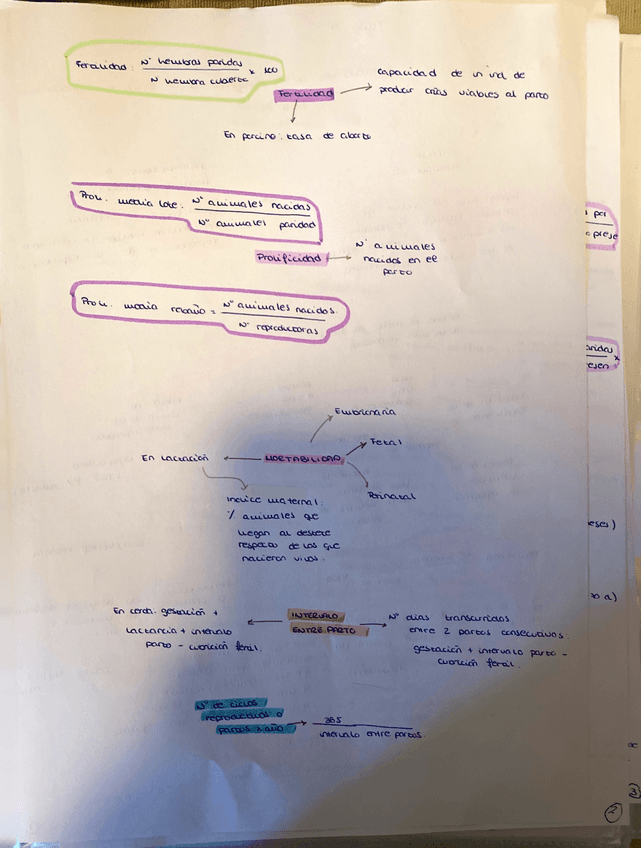 Fertilidad: Nº hembras paridas
N hembra cubierta
x 100
Fertilidad
capacidad de un ind. de
producir crías viables al parto
En porcino: tasa de aborto
Prol. media lote: Nº animales nacidos
Nº animales paridad
Prolificidad
Nº animales
nacidos en el
parto
Prol. media rebaño = Nº animales nacidos.
Nº reproductoras
Embrionaria
Fetal
En lactación
MORTABILIDAD
Perinatal
Indice maternal:
% animales que
llegan al destete
respecto de los que
nacieron vivos.
En cerda: gestación +
lactancia + intervalo
parto - cubrición fértil.
INTERVALO
ENTRE PARTO
Nº dias transcurridos
entre 2 partos consecutivos.
gestación + intervalo parto -
cubrición fértil.
Nº de ciclos
reproductivos o
partos x año
365
intervalo entre partos.
s por
prese
aridas
x
resen
eses)
so a)
2